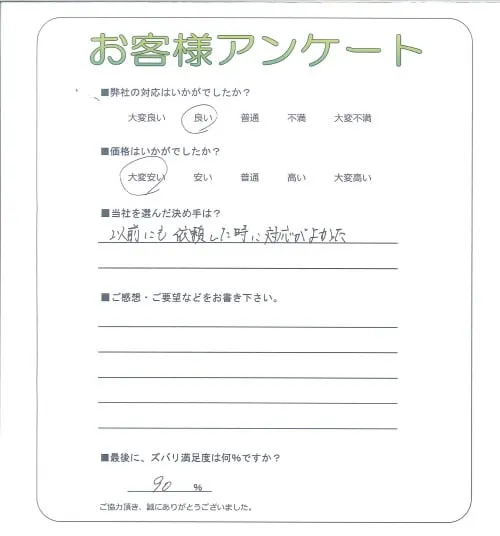 お客様アンケート
■弊社の対応はいかがでしたか？
大変良い 良い 普通 不満 大変不満
■価格はいかがでしたか？
大変安い 安い 普通 高い 大変高い
■当社を選んだ決め手は？
以前にも依頼した時に対応がよかった
■ご感想・ご要望などをお書き下さい。
■最後に、ズバリ満足度は何%ですか？
90 %
ご協力頂き、誠にありがとうございました。